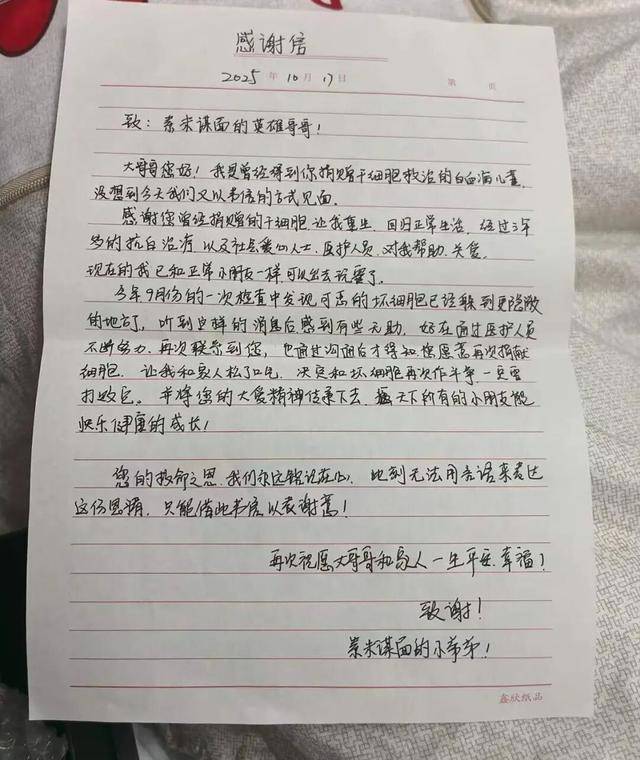 感谢信
2025年10月17日 第 页
致：素未谋面的英雄哥哥！
大哥哥您好！我是曾经得到你捐赠干细胞救治的白血病儿童，
没想到今天我们又以书信的方式见面。
感谢您曾经捐赠的干细胞让我重生，回归正常生活，经过3年
多的抗白治疗，以及社会爱心人士、医护人员，对我帮助、关爱。
现在的我已和正常小朋友一样，可以出去玩耍了。
今年9月份的一次检查中发现可恶的坏细胞已经躲到更隐蔽
的地方，听到这样的消息后，感到有些无助。好在通过医护人员
不断努力，再次联系到您，也通过沟通后才得知您愿意再次捐献
细胞，让我和家人松了口气，决定和坏细胞再次作斗争，一定要
打败它。并将您的大爱精神传承下去，愿天下所有的小朋友能
快乐健康的成长！
您的救命之恩，我们永远铭记在心，此刻无法用言语来表达
这份恩情，只能借此书信以表谢意！
再次祝愿大哥哥和家人一生平安、幸福！
致谢！
素未谋面的小弟弟！
鑫欣纸品